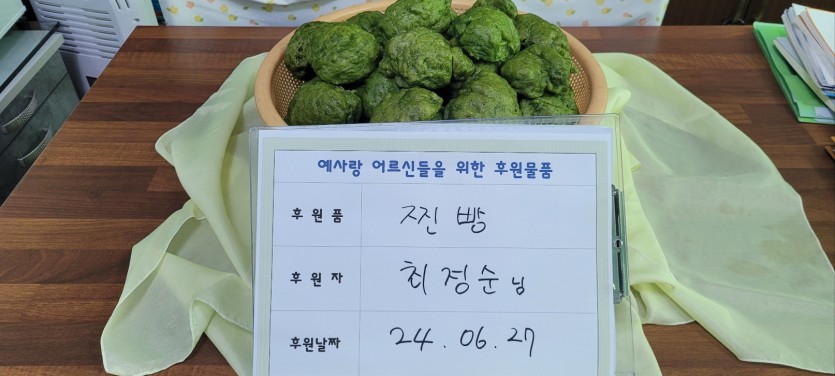 예사랑 어르신들을 위한 후원물품
후 원 품 찐빵
후 원 자 최정순 님
후원날짜 24. 06. 27